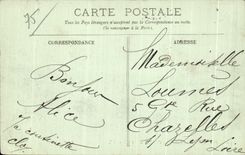 75
CARTE POSTALE
Tous les Pays étrangers n'acceptent pas la Correspondance au recto
(Se renseigner à la Poste)
CORRESPONDANCE
ADRESSE
Bonjour
Alice
Mademoiselle
Loumes
5 Gde Rue
Chazelles
s/ Lyon
Loire